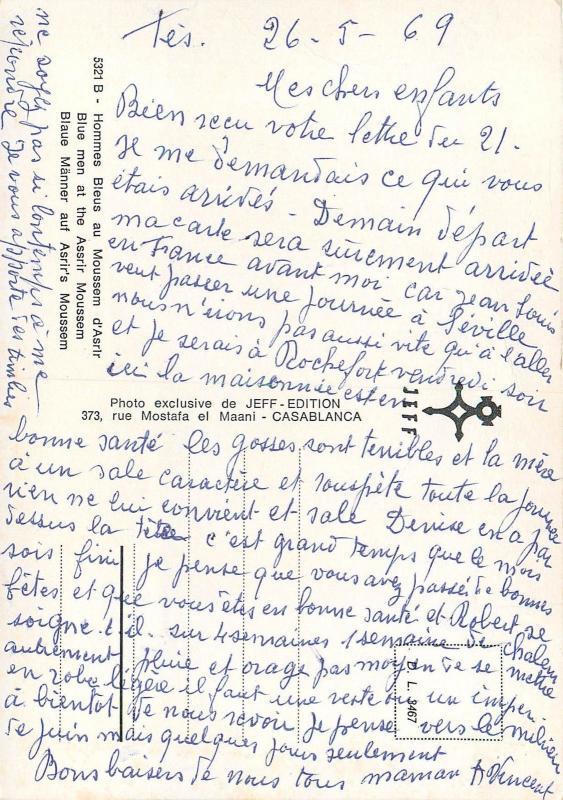 Fès. 26-5-69
Mes chers enfants
Bien reçu votre lettre du 21.
Je me demandais ce qui vous
étais arrivés - Demain départ
ma carte sera sûrement arrivée
en France avant moi car Jean Louis
veut passer une journée à Séville
nous n'irons pas aussi vite qu'à l'aller
et je serais à Rochefort vendredi soir
ici la maisonnée est en
bonne santé les gosses sont terribles et la mère
à un sale caractère et rouspète toute la journée
rien ne lui convient et sale Denise en a par
dessus la tête c'est grand temps que le mois
sois fini je pense que vous avez passé de bonnes
fêtes et que vous êtes en bonne santé et Robert se
soigne-t-il. sur 4 semaines 1 semaine de chaleur
autrement pluie et orage pas moyen de se mettre
en robe légère il faut une veste ou un imper.
à bientôt de nous revoir je pense vers le milieu
de juin mais quelques jours seulement
Bons baisers de nous tous maman Vincent
ne soyez pas si longtemps à me
répondre Je vous apporte des timbres
5321 B - Hommes Bleus au Moussem d'Asrir
Blue men at the Assrir Moussem
Blaue Männer auf Asrir's Moussem
Photo exclusive de JEFF-EDITION
373, rue Mostafa el Maani - CASABLANCA
JEFF
D. L. 3467